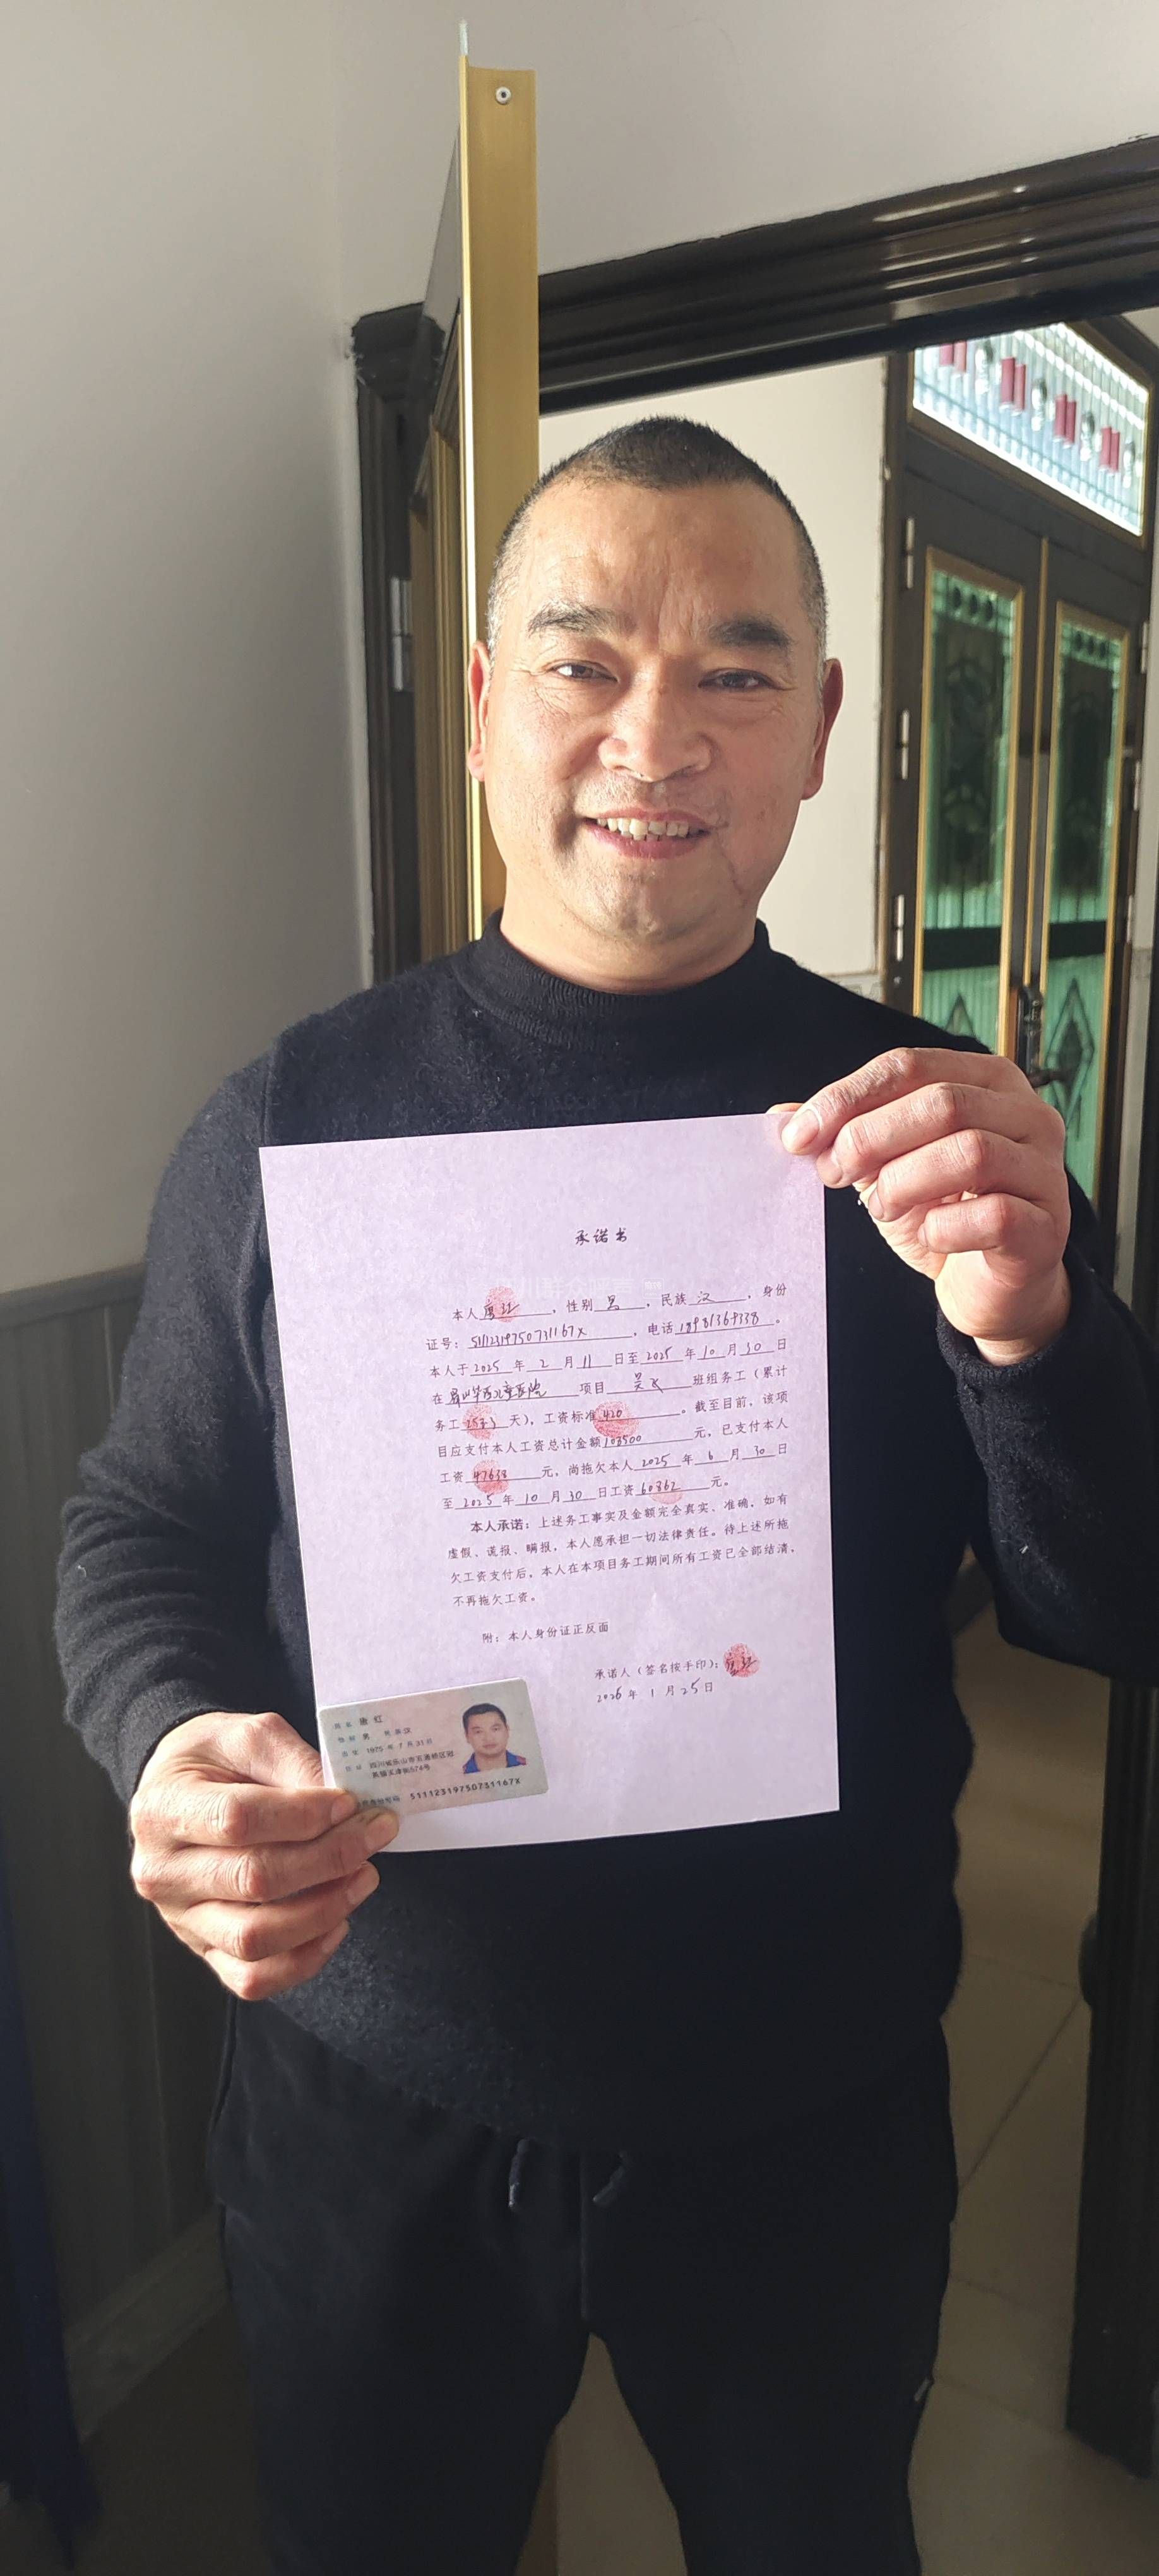 承诺书
本人唐红，性别男，民族汉，身份
证号：51112319750731167X，电话18981369338。
本人于2025年2月11日至2025年10月30日
在眉山华西儿童医院项目吴飞班组务工（累计
务工 天），工资标准420。截至目前，该项
目应支付本人工资总计金额108500元，已支付本人
工资47638元，尚拖欠本人2025年6月30日
至2025年10月30日工资60862元。
本人承诺：上述务工事实及金额完全真实、准确，如有
虚假、谎报、瞒报，本人愿承担一切法律责任。待上述所拖
欠工资支付后，本人在本项目务工期间所有工资已全部结清，
不再拖欠工资。
附：本人身份证正反面
承诺人（签名按手印）：唐红
2026年1月25日
姓名 唐红
性别 男 民族 汉
出生 1975年7月31日
住址 四川省乐山市五通桥区冠
英镇天津街574号
公民身份号码 51112319750731167X